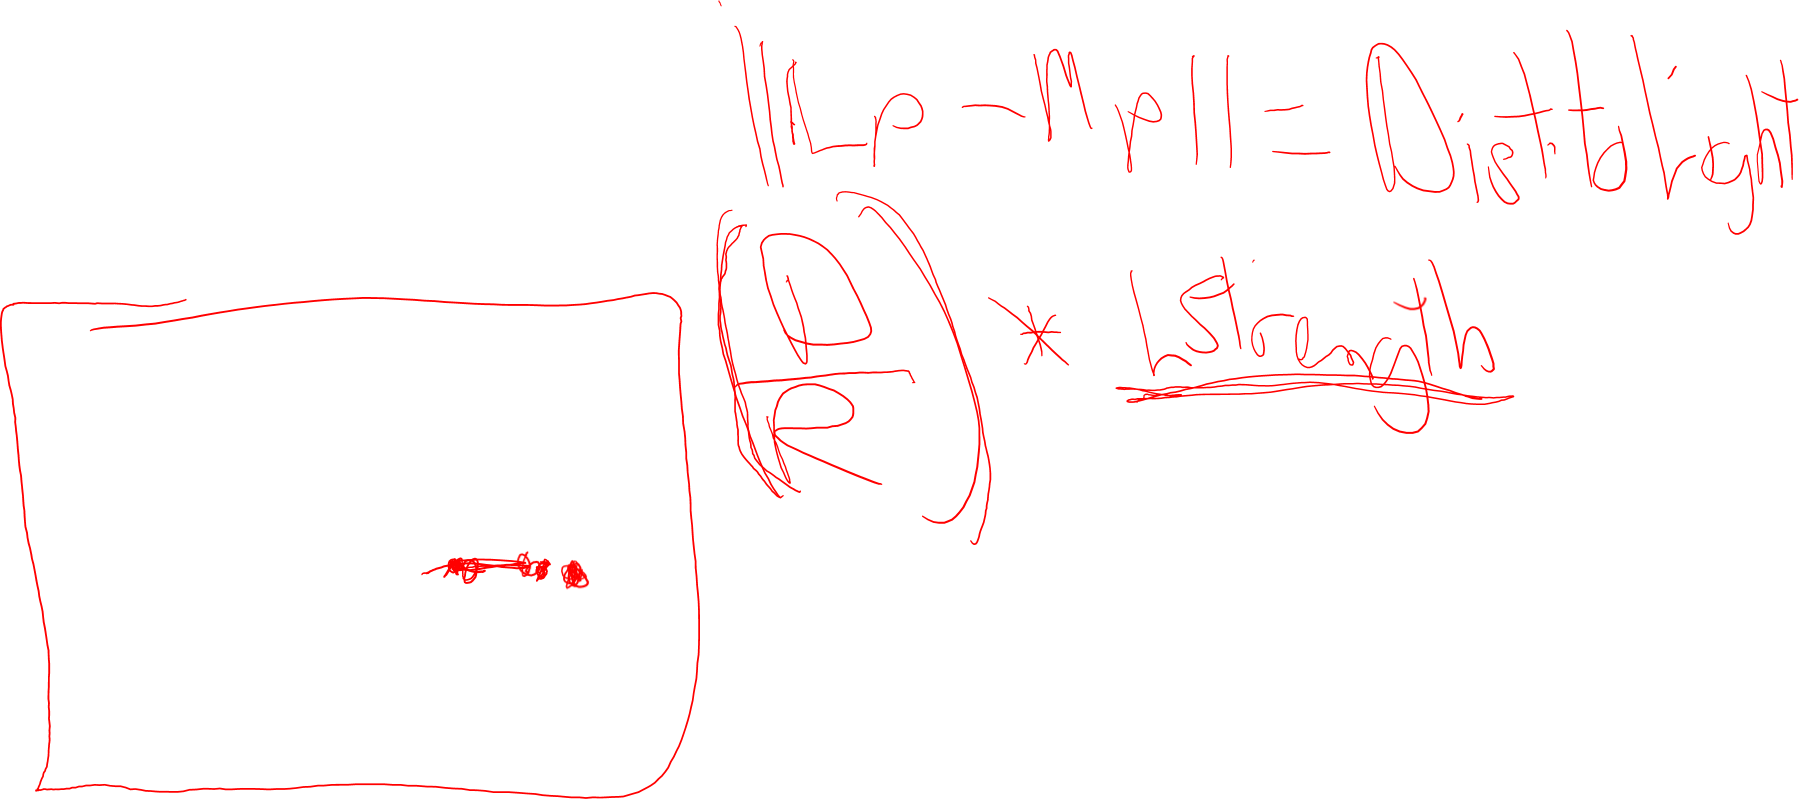 ||Lp - Mp|| = Dist to Light
(D/R) * LStrength